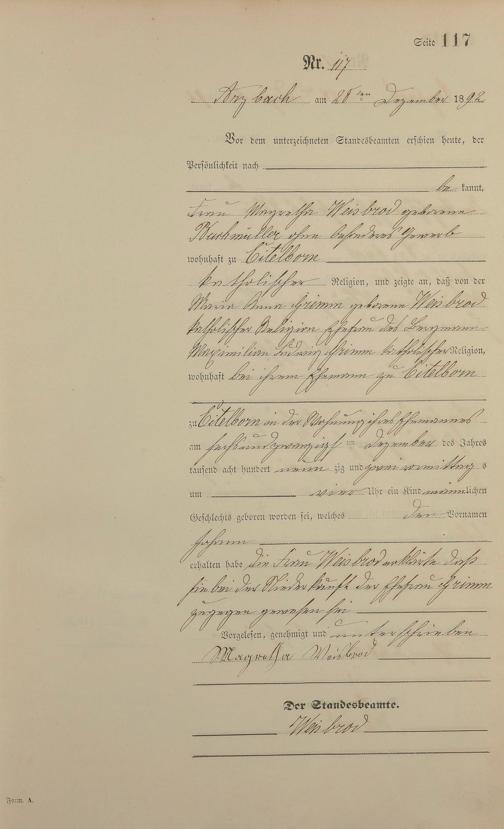 Seite 117
Nr. 117
Arzbach am 28ten Dezember 1892
Vor dem unterzeichneten Standesbeamten erschien heute, der
Persönlichkeit nach
be kannt,
Frau Magretha Weisbrod geborene
ohne besonderes Gewerb
wohnhaft zu Eitelborn
katholischer Religion, und zeigte an, daß von der
Maria Anna Grimm geborene Weisbrod
katholischer Religion Ehefrau des Bergmann
Maximilian Ludwig Grimm katholischer Religion,
wohnhaft bei ihrem Ehemann zu Eitelborn
zu Eitelborn in der Wohnung ihres Ehemannes
am sechsundzwanzigsten Dezember des Jahres
tausend acht hundert neun zig und zwei vormittags
um vier Uhr ein Kind männlichen
Geschlechts geboren worden sei, welches den Vornamen
Johann
erhalten habe die Frau Weisbrod erklärte daß
sie bei der Niederkunft der Ehefrau Grimm
zugegen gewesen sei
Vorgelesen, genehmigt und unterschrieben
Magretha Weisbrod
Der Standesbeamte.
Weisbrod
Form. A.